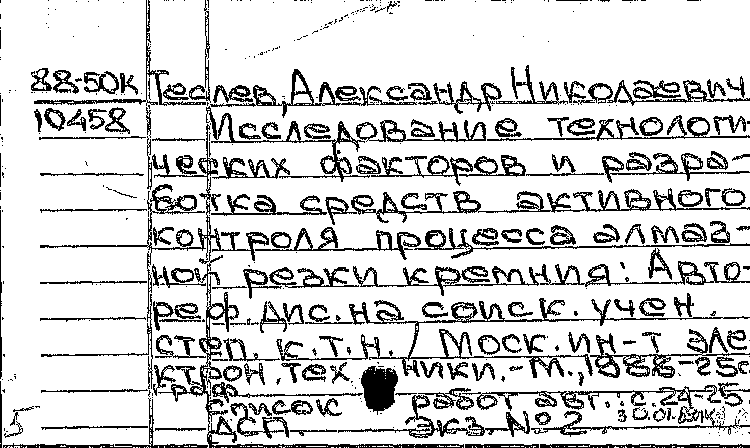 88-50К Теслев, Александр Николаевич
10458 Исследование технологи-
ческих факторов и разра-
ботка средств активного
контроля процесса алмаз-
ной резки кремния: Авто-
реф. дис. на соиск. учен.
степ. к.т.н. / Моск. ин-т эле
ктрон. техники. - М., 1988. - 25с
граф
Список работ авт.: с. 24-25
ДСП. Экз. № 2.